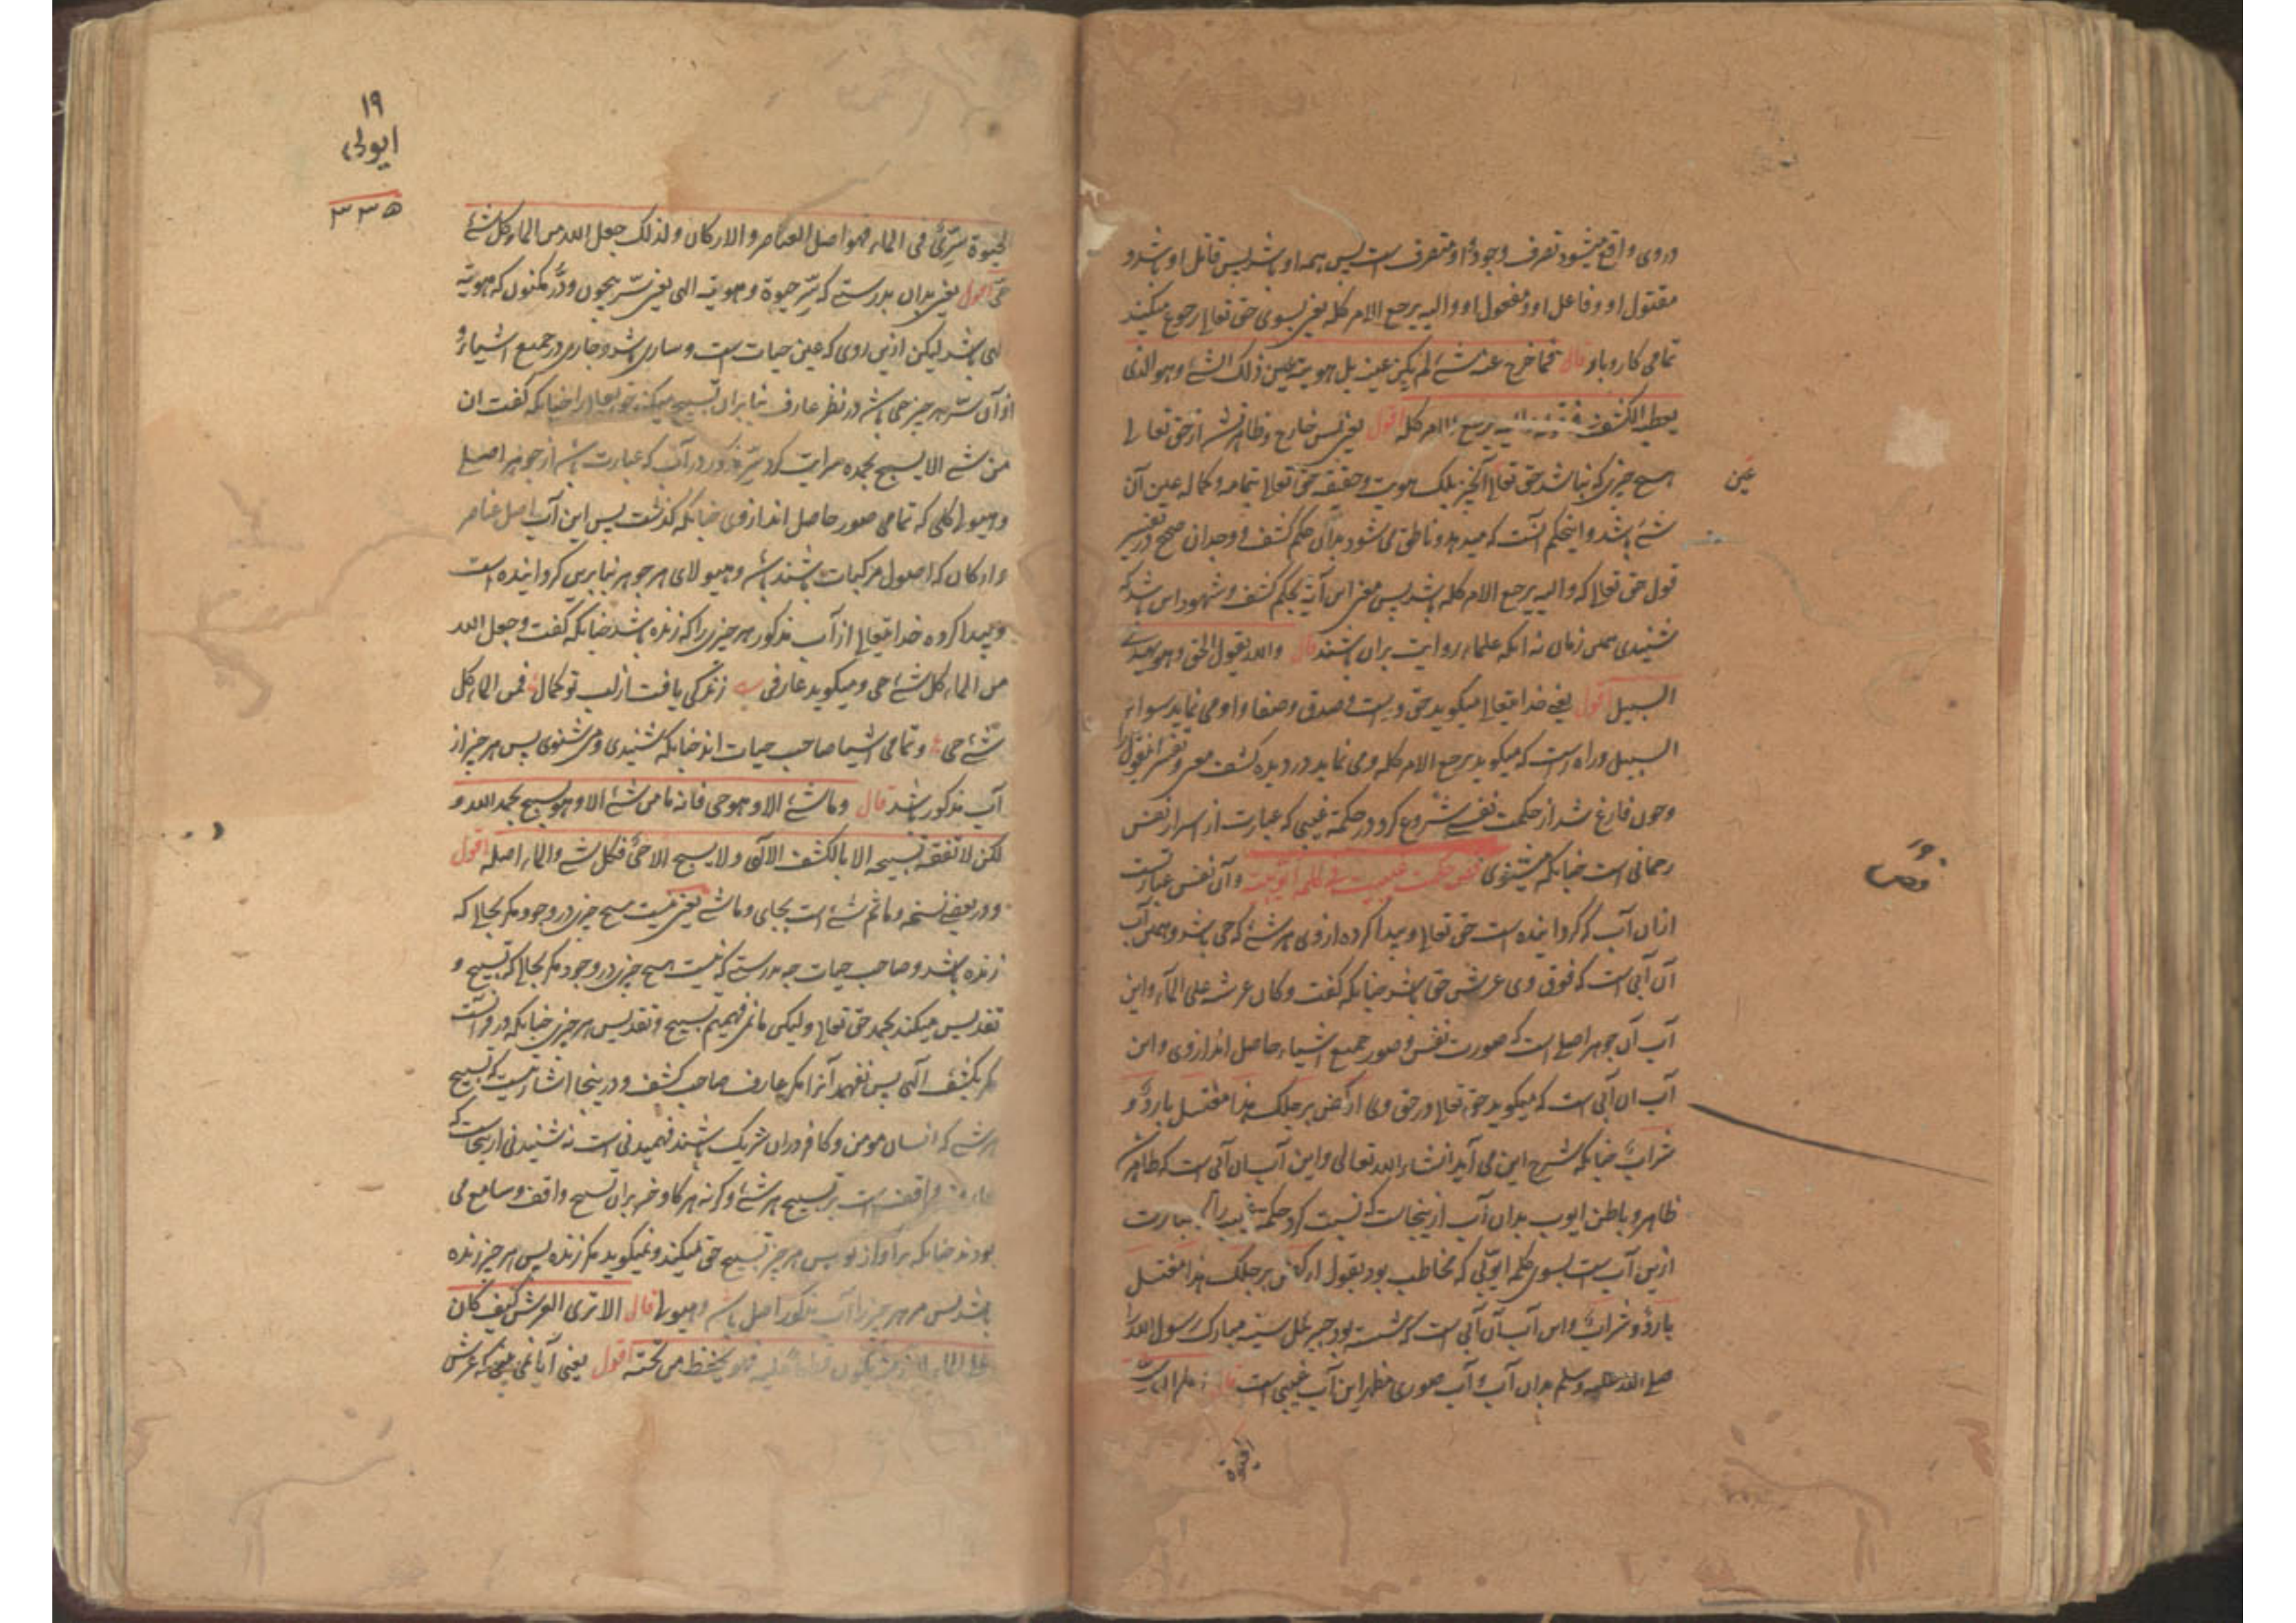 در وی واقع میشود تصرف وجود او متصرف است پس همه او باشد پس قاتل او باشد و
مقتول او و فاعل او و مفعول او و الیه یرجع الامر کله یعنی بسوی حق تعالی رجوع میکند
تمامی کار و بار قال فما خرج عنه شئ لم یکن عینه بل هویته عین ذلک الشئ و هو الذی
یعطیه الکشف یرجع الامر کله اقول یعنی پس خارج و ظاهر نشد از حق تعالی
هیچ چیزی که نباشد حق تعالی آنچیز بلکه هویت و حقیقة حق تعالی بتمامه و کماله عین آن
عین
شئ باشد و اینحکم آنست که میدهد و ناطق می شود بدان حکم کشف و وجدان صحیح در تفسیر
قول حق تعالی که و الیه یرجع الامر کله باشد پس معنی این آیة بحکم کشف و شهود این باشد که
شنیدی همین زمان نه آنکه علماء روایت بران باشند قال و الله یقول الحق و هو یهدی
السبیل اقول یعنی خدا تعالی میگوید حق و راست و صدق و صفا و او می نماید سواء
السبیل و راه راست که میگوید یرجع الامر کله و می نماید در دیده کشف معنی و تفسیر این قول را
و چون فارغ شد از حکمت نفسی شروع کرد در حکمة غیبی که عبارت از اسرار نفس
رحمانی است چنانکه میشنوی فص حکمت غیبیة فی کلمة ایوبیة و آن نفس عبارت است
فص
ازان آب که گردانیده است حق تعالی و پیدا کرده از وی هر شئ که حی باشد و همین آب
آن آبی است که فوق وی عرش حق باشد چنانکه گفت و کان عرشه علی الماء و این
آب آن جوهر اصلی است که صورت نفس و صور جمیع اشیاء حاصل اند از وی و این
آب آن آبی است که میگوید حق تعالی در حق وی ارکض برجلک هذا مغتسل بارد و
شراب چنانکه شرح این می آید انشاء الله تعالی و این آب آن آبی است که طاهر شد
ظاهر و باطن ایوب بدان آب ازینجاست که نسبت کرد حکمة غیبیه را که عبارت
ازین آب است بسوی کلمه ایوبی که مخاطب بود بقول ارکض برجلک هذا مغتسل
بارد و شراب و این آب آن آبی است که شسته بود جبرئیل سینه مبارک رسول الله را
صلی الله علیه و سلم بدان آب و آب صوری مظهر این آب غیبی است قال اعلم ان سر
الحیوة
۱۹
ایوبی
۳۳۵
الحیوة سری فی الماء فهو اصل العناصر و الارکان و لذلک جعل الله من الماء کل شئ
حی اقول یعنی بدان بدرستی که سر حیوة و هویة الهی یعنی سر بیچون و در مکنون که هویة
الهی باشد لیکن ازین روی که عین حیات است و ساری باشد و جاری در جمیع اشیاء و
از آن سر هر چیز حی باشد در نظر عارف بنابران تسبیح میکند حق تعالی را چنانکه گفت ان
من شئ الا یسبح بحمده سرایت کرد سر مذکور در آب که عبارت باشد از جوهر اصلی
و هیولاء کلی که تمامی صور حاصل اند از وی چنانکه گذشت پس این آب اصل عناصر
و ارکان که اصول مرکبات باشند باشد و هیولای هر جوهر بنابرین گردانیده است
و پیدا کرده خدا تعالی از آب مذکور هر چیزی را که زنده باشد چنانکه گفت و جعل الله
من الماء کل شئ حی و میگوید عارفی زندگی یافت از لب تو کمال فمن الماء کل
شئ حی و تمامی اشیا صاحب حیات اند چنانکه شنیدی و می شنوی پس هر چیز از
آب مذکور باشد قال و ما شئ الا و هو حی فانه ما من شئ الا و هو یسبح بحمد الله و
لکن لا نفقه تسبیحه الا بالکشف الالهی و لا یسبح الا حی فکل شئ و الماء اصله اقول
و در بعضی نسخه و ما ثم شئ است بجای و ما شئ یعنی نیست هیچ چیزی در وجود مگر بحالی که
زنده باشد و صاحب حیات چه بدرستی که نیست هیچ چیزی در وجود مگر بحالی که تسبیح و
تقدیس میکند بحمد حق تعالی و لیکن ما نمی فهمیم تسبیح و تقدیس هر چیزی چنانکه در قرآنست
مگر بکشف الهی پس نفهمد آنرا مگر عارف صاحب کشف و درینجا اشارتیست که تسبیح
هر شئ که انسان مومن و کافر دران شریک باشند فهمیدنی است نه شنیدنی ازینجاست که
عارف واقف است بر تسبیح هر شئ و گرنه هر گاو و خر بران تسبیح واقف و سامع می
بودند چنانکه بر آواز او پس هر چیز تسبیح حق میکند و نمیگوید مگر زنده پس هر چیز زنده
باشد پس مر هر چیز را آب مذکور اصل باشد و هیولا قال الا تری العرش کیف کان
علی الماء لانه منه تکون فطفا علیه فهو یحفظه من تحته اقول یعنی آیا نمی بینی که عرش